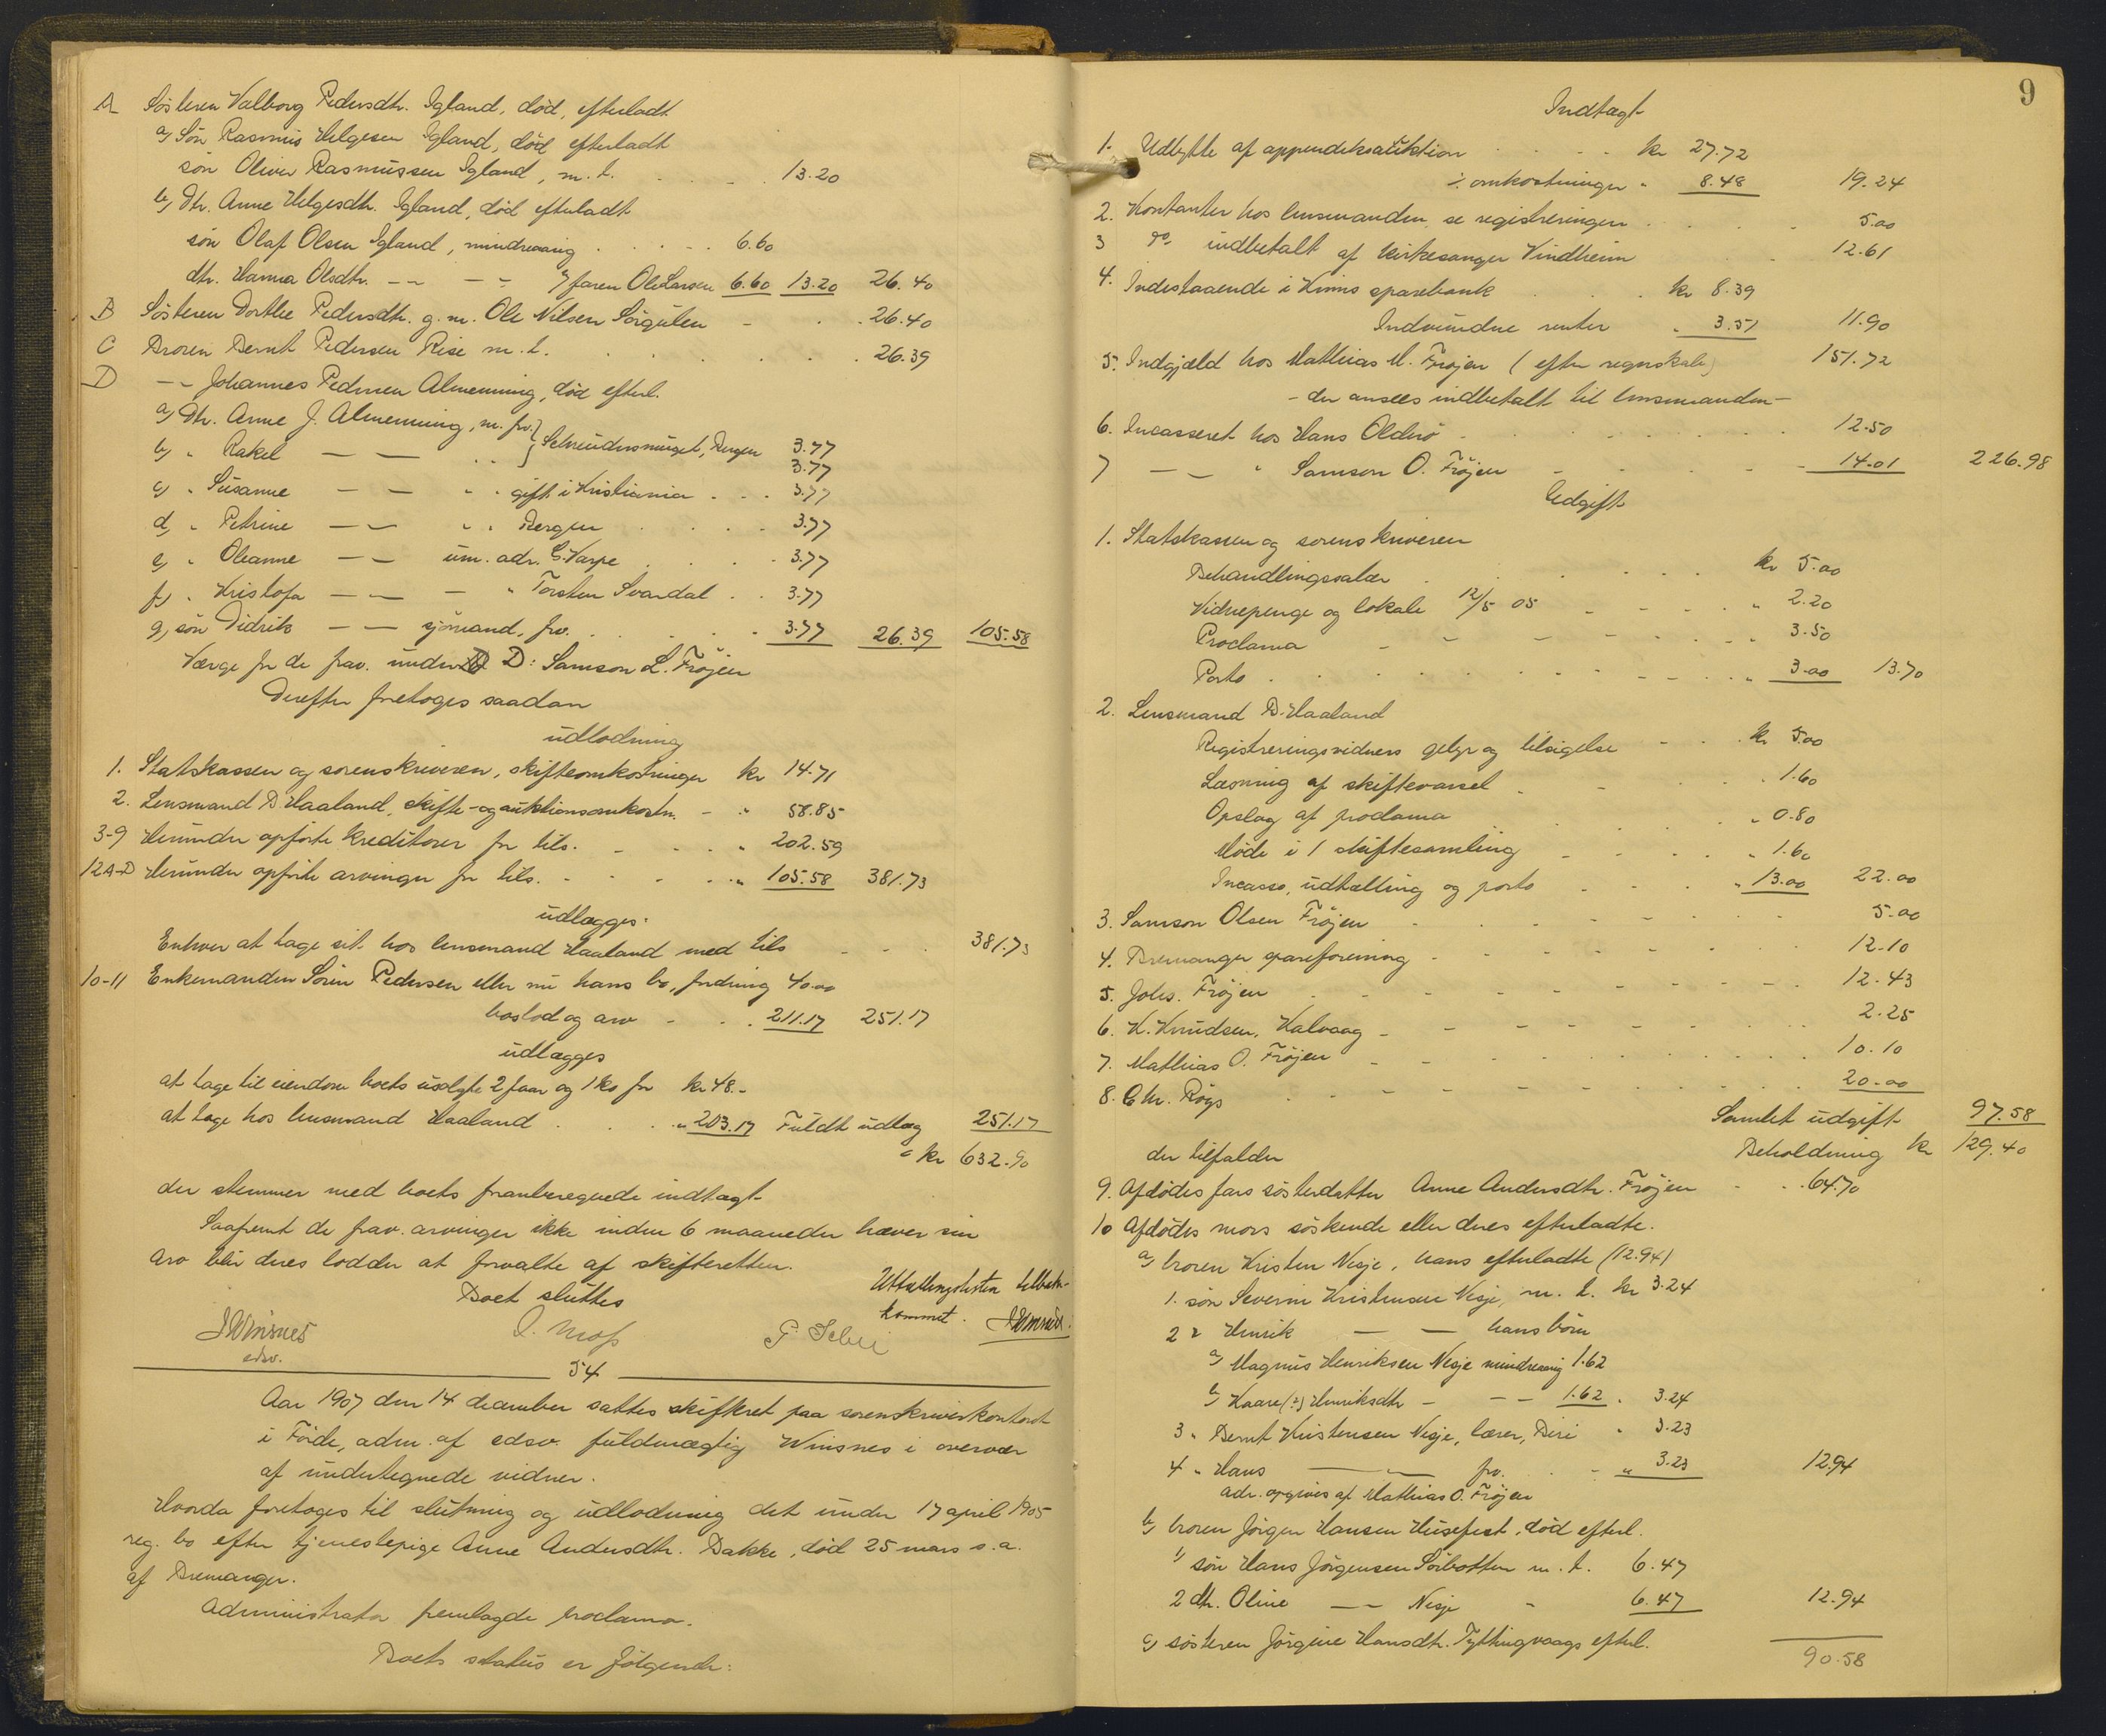 A Søsteren Valborg Pedersdtr. Igland, død, efterladt
a) Søn Rasmus Helgesen Igland, død efterladt
søn Oliver Rasmussen Igland, m. t. 13.20
b) Dtr. Anne Helgesdtr. Igland, død efterladt
søn Olaf Olsen Igland, mindreaarig 6.60
dtr. Hanna Olsdtr. faren Ole Larsen 6.60 13.20 26.40
B Søsteren Dorthe Pedersdtr. g. m. Ole Nilsen Sørgulen 26.40
C Broren Bernt Pedersen Rise m. t. 26.39
D Johannes Pedersen Almenning, død efterl.
a) Dtr. Anne J. Almenning, m. frv. 3.77
b) " Rakel Bergen 3.77
c) " Susanne gift i Kristiania 3.77
d) " Petrine Bergen 3.77
e) " Oleanne um. adr. C. Harpe 3.77
f) " Kristofa Torsten Svardal 3.77
g) søn Didrik sjømand, frv. 3.77 26.39 105.58
Værge for de frav. under D: Samson L. Frøjen
Derefter foretoges saadan
udlodning
1. Statskassen og sorenskriveren, skifteomkostninger kr 14.71
2. Lensmand D. Haaland, skifte- og auktionsomkostn. " 58.85
3-9 Herunder opførte kreditorer for tils. " 202.59
12A-D Herunder opførte arvinger for tils. " 105.58 381.73
udlægges:
Enhver at tage sit hos lensmand Haaland med tils 381.73
10-11 Enkemanden Søren Pedersen eller nu hans bo, fordring 40.00
boslod og arv 211.17 251.17
udlægges
at tage til eiendom boets usolgte 2 faar og 1 ko for kr 48.-
at tage hos lensmand Haaland " 203.17 Fuldt udlæg 251.17
kr 632.90
der stemmer med boets fremberegnede indtægt
Saafremt de frav. arvinger ikke inden 6 maaneder hæver sin
arv blir deres lodder at forvalte af skifteretten.
Boet sluttes
Uttællingslisten tilbake-
kommet. JWinsnes.
JWinsnes
edsv.
J. Moss
54
Aar 1907 den 14 december sattes skifteret paa sorenskriverkontoret
i Førde, adm. af edsv. fuldmægtig Winsnes i overvær
af undertegnede vidner.
Hvorda foretoges til slutning og udlodning det under 17 april 1905
reg. bo efter tjenestepige Anne Andersdtr. Bakke, død 25 mars s. a.
af Bremanger.
Administrator fremlagde proclama.
Boets status er følgende:
9
Indtægt
1. Udbytte af appendeksauktion kr 27.72
÷ omkostninger " 8.48 19.24
2. Kontanter hos lensmanden, se registreringen 5.00
3 do. indbetalt af kirkesanger Vindheim 12.61
4. Indestaaende i Kinns sparebank kr 8.39
Indvundne renter " 3.51 11.90
5. Indgjæld hos Mathias M. Frøjen (efter regnskab) 151.72
- der ansees indbetalt til lensmanden -
6. Incasseret hos Hans Olderø 12.50
7 " Samson O. Frøjen 14.01 226.98
Udgift
1. Statskassen og sorenskriveren
Behandlingssalær kr 5.00
Vidnepenge og lokale 12/5 05 " 2.20
Proclama " 3.50
Porto " 3.00 13.70
2. Lensmand D. Haaland
Registreringsvidners gebyr og tilsigelse kr 5.00
Læsning af skiftevarsel 1.60
Opslag af proclama " 0.80
Møde i 1 skiftesamling " 1.60
Incasso, udtælling og porto " 13.00 22.00
3. Samson Olsen Frøjen 5.00
4. Bremanger spareforening 12.10
5. Johs. Frøjen 12.43
6. K. Knudsen, Kalvaag 2.25
7. Mathias O. Frøjen 10.10
8. Chr. Røys 20.00
Samlet udgift 97.58
der tilfalder Beholdning kr 129.40
9. Afdødes fars søsterdatter Anne Andersdtr. Frøjen 64.70
10 Afdødes mors søskende eller deres efterladte.
a) broren Kristen Nesje, hans efterladte (12.94)
1. søn Severin Kristensen Nesje, m. t. kr 3.24
2 " Henrik hans børn
a) Magnus Henriksen Nesje mindreaarig 1.62
b) Kaare(?) Henriksdtr 1.62 " 3.24
3 " Bernt Kristensen Nesje, lærer, Biri " 3.23
4 " Hans frv. " 3.23 12.94
adr. opgives af Mathias O. Frøjen
b) broren Jørgen Hansen Husefest, død efterl.
1) søn Hans Jørgensen Sørbotten m. t. 6.47
2 dtr. Oline Nesje 6.47 12.94
c) søsteren Jørgine Hansdtr. Tyttingvaag efterl.
90.58